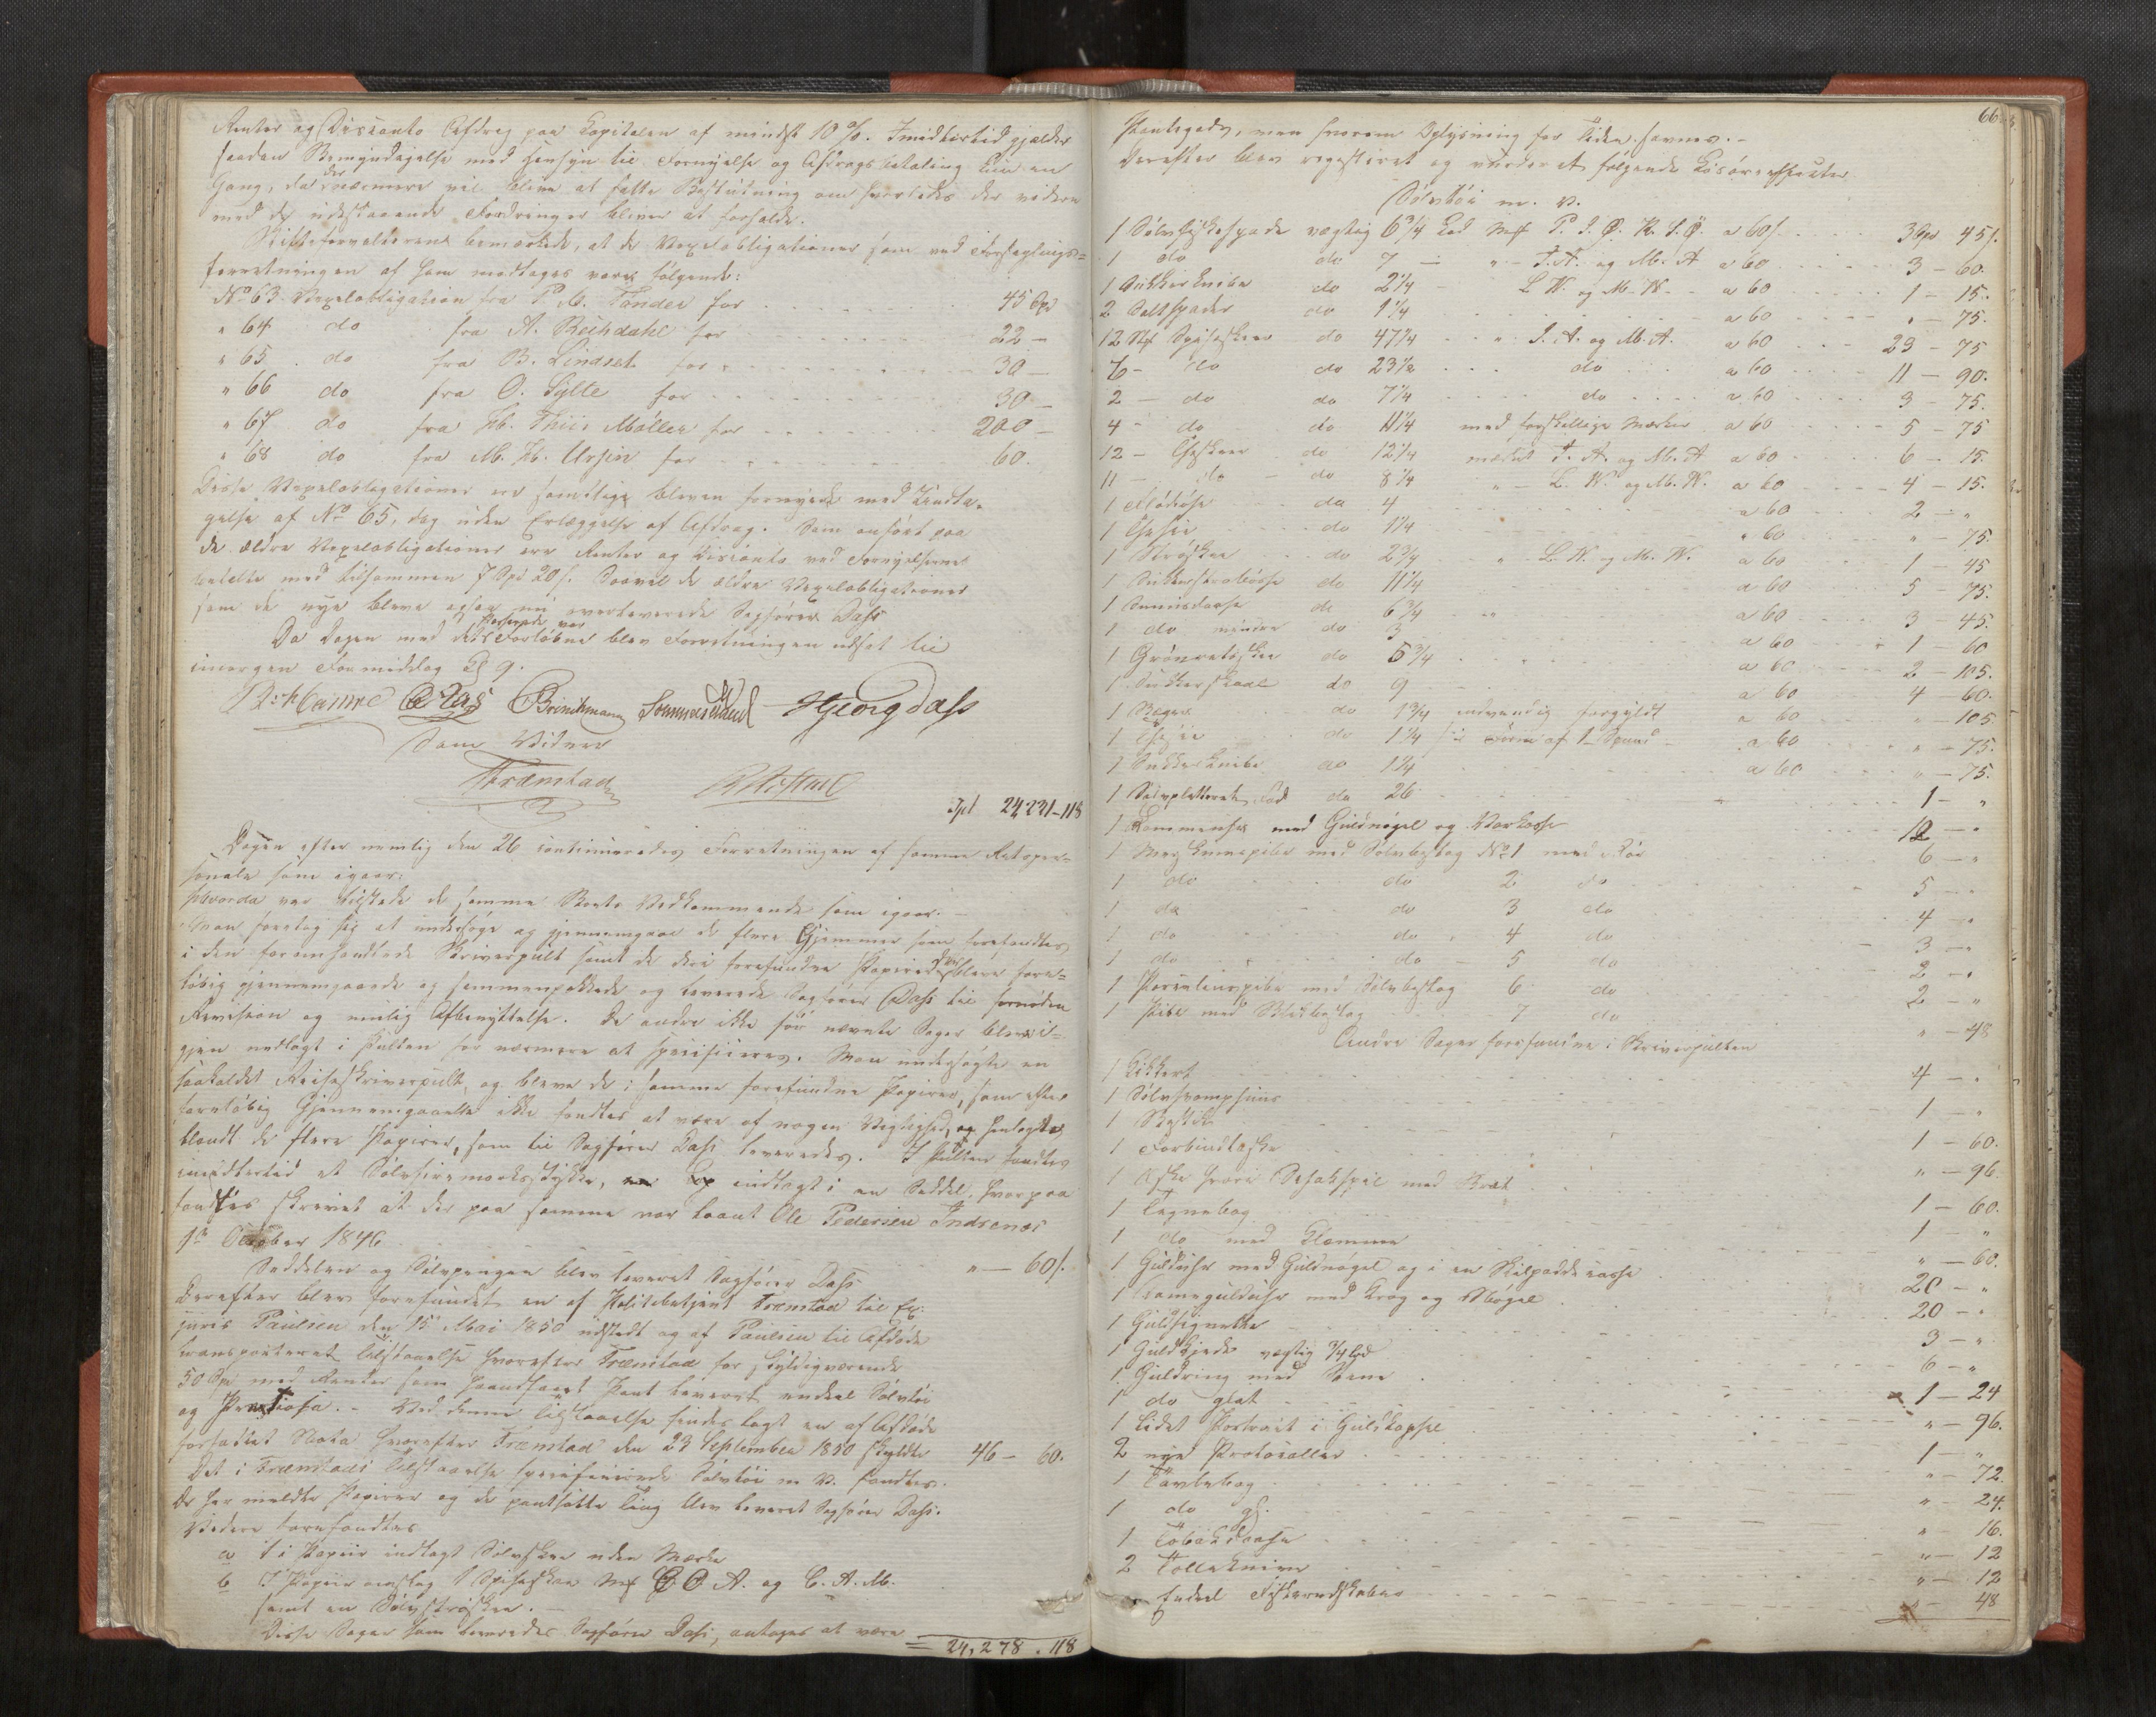 Renter og Disconto Afdrag paa Kapitalen af mindst 10 %. Imidlertid gjælder
saadan Bemyndigelse med Hensyn til Fornyelse og Afdragsbetaling kun en
Gang, da der nærmere vil blive at fatte Beslutning om hvorledes der videre
med de udestaaende Fordringer bliver at forholde.
Skifteforvalteren bemærkede, at de Vexelobligationer som ved Forseglings-
forretningen af ham modtoges vare følgende:
No 63 Vexelobligation fra P. M. Tønder for 45 Spd
" 64 do fra A. Bechdahl for 22 —
" 65 do fra B. Lindset for 30 —
" 66 do fra O. Sylte for 30 —
" 67 do fra Thiis Møller for 200 —
" 68 do fra M. Ursin for 60.
Disse Vexelobligationer ere samtlige bleven fornyede med Undta-
gelse af No 65, dog uden Erlæggelse af Afdrag. Som anført paa
de ældre Vexelobligationer ere Renter og Disconto ved Fornyelserne
betalte med tilsammen 7 Spd 20 s. Saavel de ældre Vexelobligationer
som de nye bleve ogsaa nu overleverede Sagfører Dass
Da Dagen med det Passerede var forløben blev Forretningen udsat til
imorgen Formiddag Kl 9.
Brinchmann Georg Dass
Som Vidner
Træmstad
Tpt 24,231-118
Dagen efter nemlig den 26 continueredes Forretningen af samme Retsper-
sonale som igaar.
Hvorda var tilstede de samme Boets Vedkommende som igaar. —
Man foretog sig at undersøge og gjennemgaae de flere Gjemmer som forefandtes
i den forommeldte Skriverpult samt de deri forefundne Papirer der bleve fore-
løbig gjennemgaaede og sammenpakkede og leverede Sagfører Dass til fornøden
Revision og mulig Afbenyttelse. De andre ikke før nævnte Sager bleve i-
gjen nedlagt i Pulten for nærmere at specificeres. Man undersøgte en
saakaldet Reiseskriverpult, og bleve de i samme forefundne Papirer, som efter
foreløbig Gjennemgaaelse ikke fandtes at være af nogen Vigtighed, og henlagdes
blandt de flere Papirer, som til Sagfører Dass leveredes. I Pulten fandtes
imidlertid et Sølvfiremarksstykke, indlagt i en Seddel, hvorpaa
fandtes skrevet at der paa samme var laant Ole Pedersen Indrenæs
1ste October 1846
Seddelen og Sølvpengen blev leveret Sagfører Dass " — 60 s.
Derefter blev forefundet en af Politibetjent Træmstad til Ex:
juris Paulsen den 15 Mai 1850 udstedt og af Paulsen til Afdøde
transporteret Tilstaaelse hvorefter Træmstad for skyldigværende
50 Spd med Renter som haandfaaet Pant leveret endeel Sølvtøi
og Pretiosa. — Ved denne Tilstaaelse fandtes lagt en af Afdøde
forfattet Nota hvorefter Træmstad den 23 September 1850 skyldte 46 — 60.
Det i Træmstads Tilstaaelse specificerede Sølvtøi m. v. fandtes.
De her meldte Papirer og de pantsatte Ting blev leveret Sagfører Dass.
Videre forefandtes
a 1 i Papir indlagt Sølvskee uden Mærke
b I Papiromslag 1 Spiseskee A. og C. A. M.
samt en Sølvstrøskee. —
Disse Sager som leveredes Sagfører Dass, antages at være
24,278. 118
66
Pantegods, men hvorom Oplysning for Tiden savnes. —
Derefter blev registreret og vurderet følgende Løsøreeffecter
Sølvtøi m. v.
1 Sølvfiskespade vægtig 6 3/4 Lod a 60 s. 3 Spd 45 s.
1 do do 7 — " — J. A. og M. A a 60 3 — 60.
1 Sukkerknibe do 2 1/4 — L. W. og M. W. a 60 1 — 15.
2 Saltspader do 1 1/4 a 60 " — 75.
12 Stk Spiseskeer do 47 1/4 " J. A. og M. A. a 60 23 — 75
6 — do do 23 1/2 do a 60 11 — 90.
2 — do do 7 1/4 do a 60 3 — 75.
4 — do do 11 1/4 med forskjellige Mærker a 60 5 — 75
12 — Theskeer do 12 1/4 mærket J. A. og M. A a 60 6 — 15.
11 — do do 8 1/4 " — L. W. og M. W. a 60 4 — 15.
1 Flødeøse do 4 a 60 2 — "
1 Thesie do 1 1/4 a 60 " — 75.
1 Strøskee do 2 3/4 " L. W. og M. W. a 60 1 — 45
1 Sukkerstrøbøsse do 11 1/4 a 60 5 — 75.
1 Snuusdaase do 6 3/4 a 60 3 — 45.
1 do mindre do 3 a 60 1 — 60
1 Grødskee do 5 3/4 a 60 2 — 105.
1 Sukkerskaal do 9 a 60 4 — 60.
1 Bæger do 1 3/4 indvendig forgyldt a 60 " — 105
1 Thesie do 1 1/4 i Form af 1 Spand a 60 " — 75.
1 Sukkerknibe do 1 1/4 a 60 " — 75.
1 Sølvpletteret Fad do 26 1 — "
1 Lommeuhr med Guldnøgel og Værkasse 12 — "
1 Merskumspibe med Sølvbeslag No 1 med Rør 6 — "
1 do do 2 do 5 — "
1 do do 3 do 4 — "
1 do do 4 do 3 — "
1 do do 5 do 2 — "
1 Porcelainspibe med Sølvbeslag 6 do 2 — "
1 Pibe med Blikbeslag 7 do " — 48
Andre Sager forefundne i Skriverpulten
1 Kikkert 4 — "
1 Sølvsvamphuus 1 — "
1 Bestik 1 — 60.
1 Forbindtaske " — 96.
1 Æske hvori Schakspil med Bræt 1 — 60.
1 Tegnebog 1 — "
1 do med Klemme " — 60.
1 Gulduhr med Guldnøgel og i en Skilpaddecasse 20 — "
1 Dameguldeuhr med Krog og Nøgel 20 — "
1 Guldsignette 3 — "
1 Guldkjede vægtig 3/4 Lod 6 — "
1 Guldring med Steen 1 — 24
1 do glat " — 96.
1 Lidet Portrait i Guldkapsel 1 — "
2 nye Protocoller " — 72.
1 Tavlebog " — 24.
1 do gl. " — 16.
1 Tobaksdaase " — 12
2 Tolleknive " — 12
Endeel Fiskeredskaber " — 48